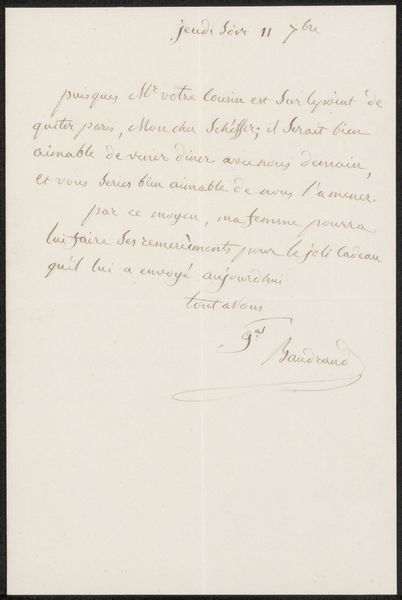 jeudi Soir 11 7bre
puisque Mr votre Cousin est Sur le point de
quiter paris, Mon cher Scheffer, il Serait bien
aimable de venir diner avec nous demain,
et vous Seriez bien aimable de nous l'amener.
par ce moyen, ma femme pourra
lui faire Ses remerciments pour le joli Cadeau
qu'il lui a envoyé aujourdhui
tout a vous
Gal Baudrand